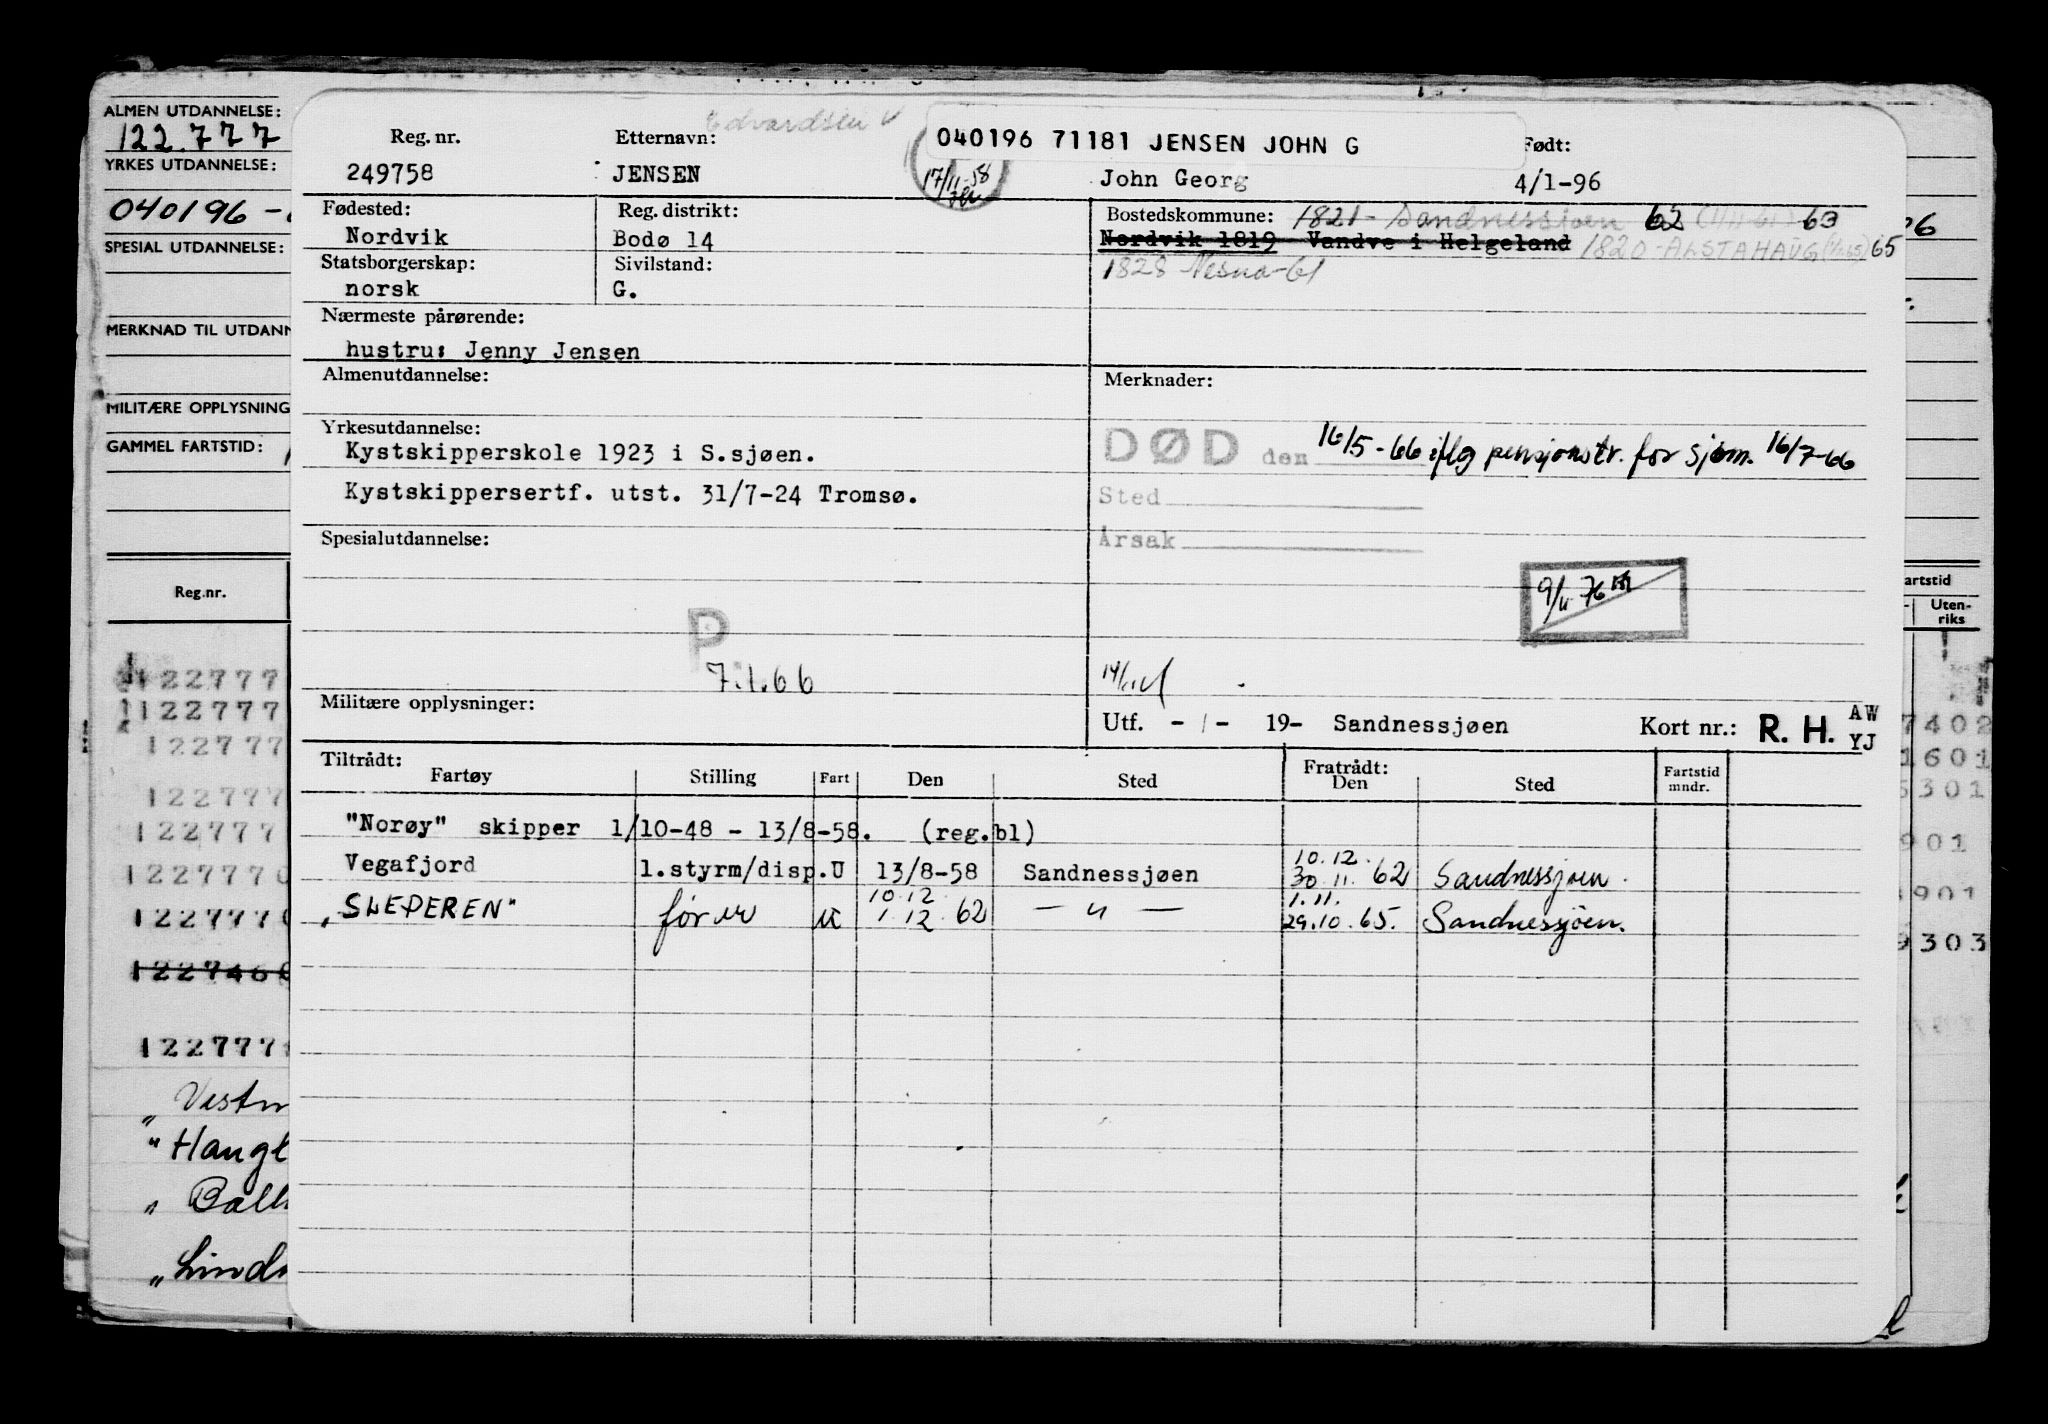 ALMEN UTDANNELSE:
122.777
YRKES UTDANNELSE:
040196 -
SPESIAL UTDANNELSE:
MERKNAD TIL UTDANN
MILITÆRE OPPLYSNING
GAMMEL FARTSTID:
Reg.nr.
122777
122777
122777
122777
122777
1227770
122777
1227460
122777
"Vestn
"Haugl
"Ball
"Lind
Edvardsen
040196 71181 JENSEN JOHN G
Reg. nr. Etternavn: Født:
249758 JENSEN 17/11-58 John Georg 4/1-96
Fødested: Reg. distrikt: Bostedskommune: 1821 - Sandnessjøen 62 63
Nordvik Bodø 14 Nordvik 1819 Vandve i Helgeland 1820-ALSTAHAUG 65
Statsborgerskap: Sivilstand: 1828 Nesna-61
norsk G.
Nærmeste pårørende:
hustru: Jenny Jensen
Almenutdannelse: Merknader:
Yrkesutdannelse:
Kystskipperskole 1923 i S.sjøen. DØD den 16/5-66 iflg pensjonstr. for sjøm. 16/7-66
Kystskippersertf. utst. 31/7-24 Tromsø. Sted
Spesialutdannelse: Årsak
9/11 76
P
7.1.66
Militære opplysninger: Utf. - / - 19- Sandnessjøen Kort nr.: R. H. AW
YJ
Tiltrådt: Fratrådt:
Fartøy Stilling Fart Den Sted Den Sted Fartstid mndr.
"Norøy" skipper 1/10-48 - 13/8-58. (reg.bl)
10.12.
Vegafjord 1.styrm/disp.U 13/8-58 Sandnessjøen 30.11.62 Sandnessjøen.
10.12 1.11.
"SLEPEREN" fører U 1.12.62 — " — 29.10.65. Sandnessjøen.
artstid
Uten-
riks
7402
1601
5301
901
901
9303